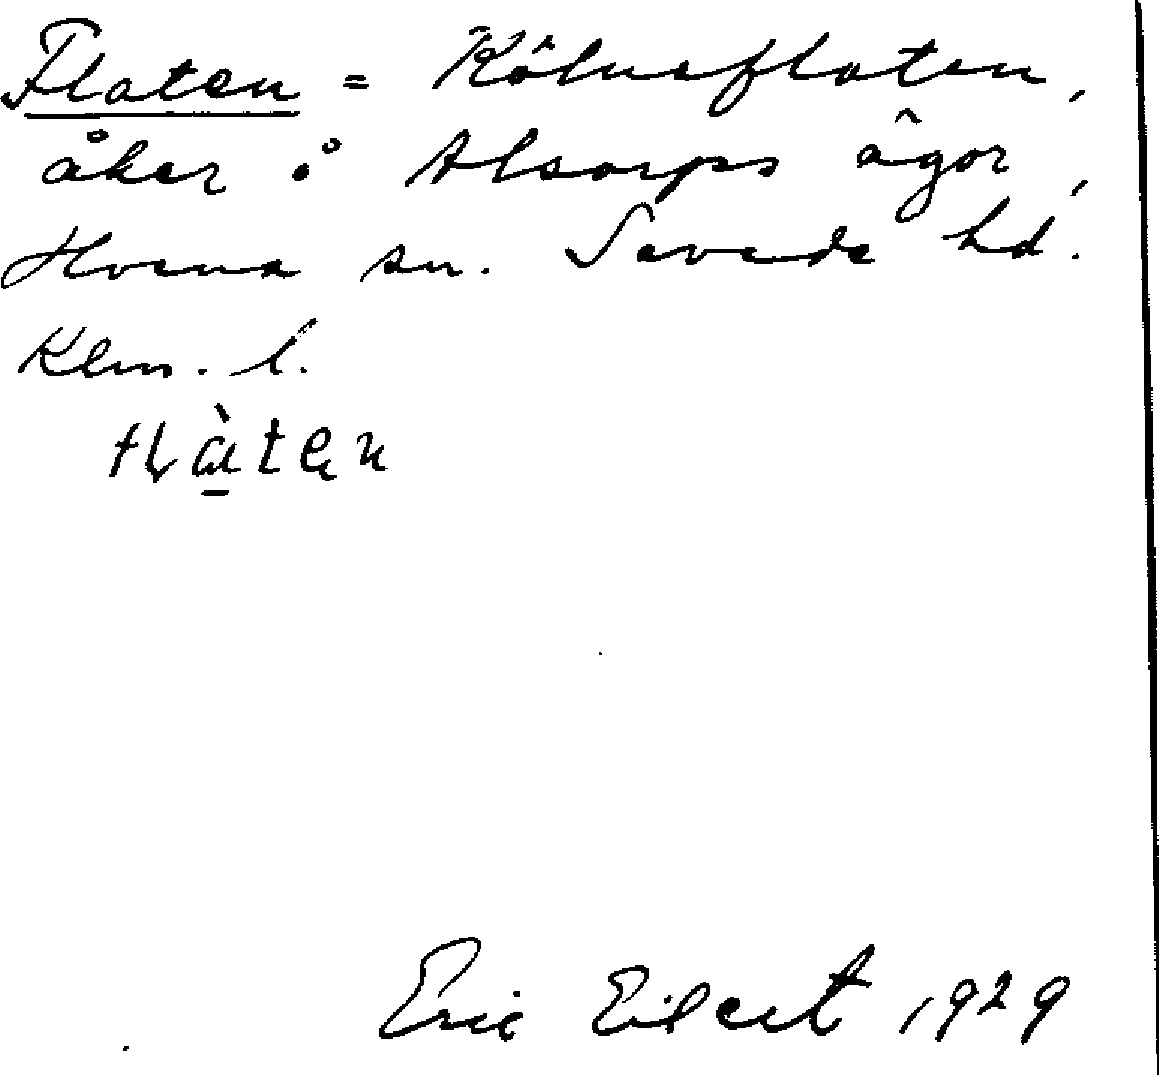 Flaten = Kölneflaten,
åker i Alsarps ägor,
Hvena sn. Sevede hd.
Klm. l.
flàten
Eric Eilert 1929